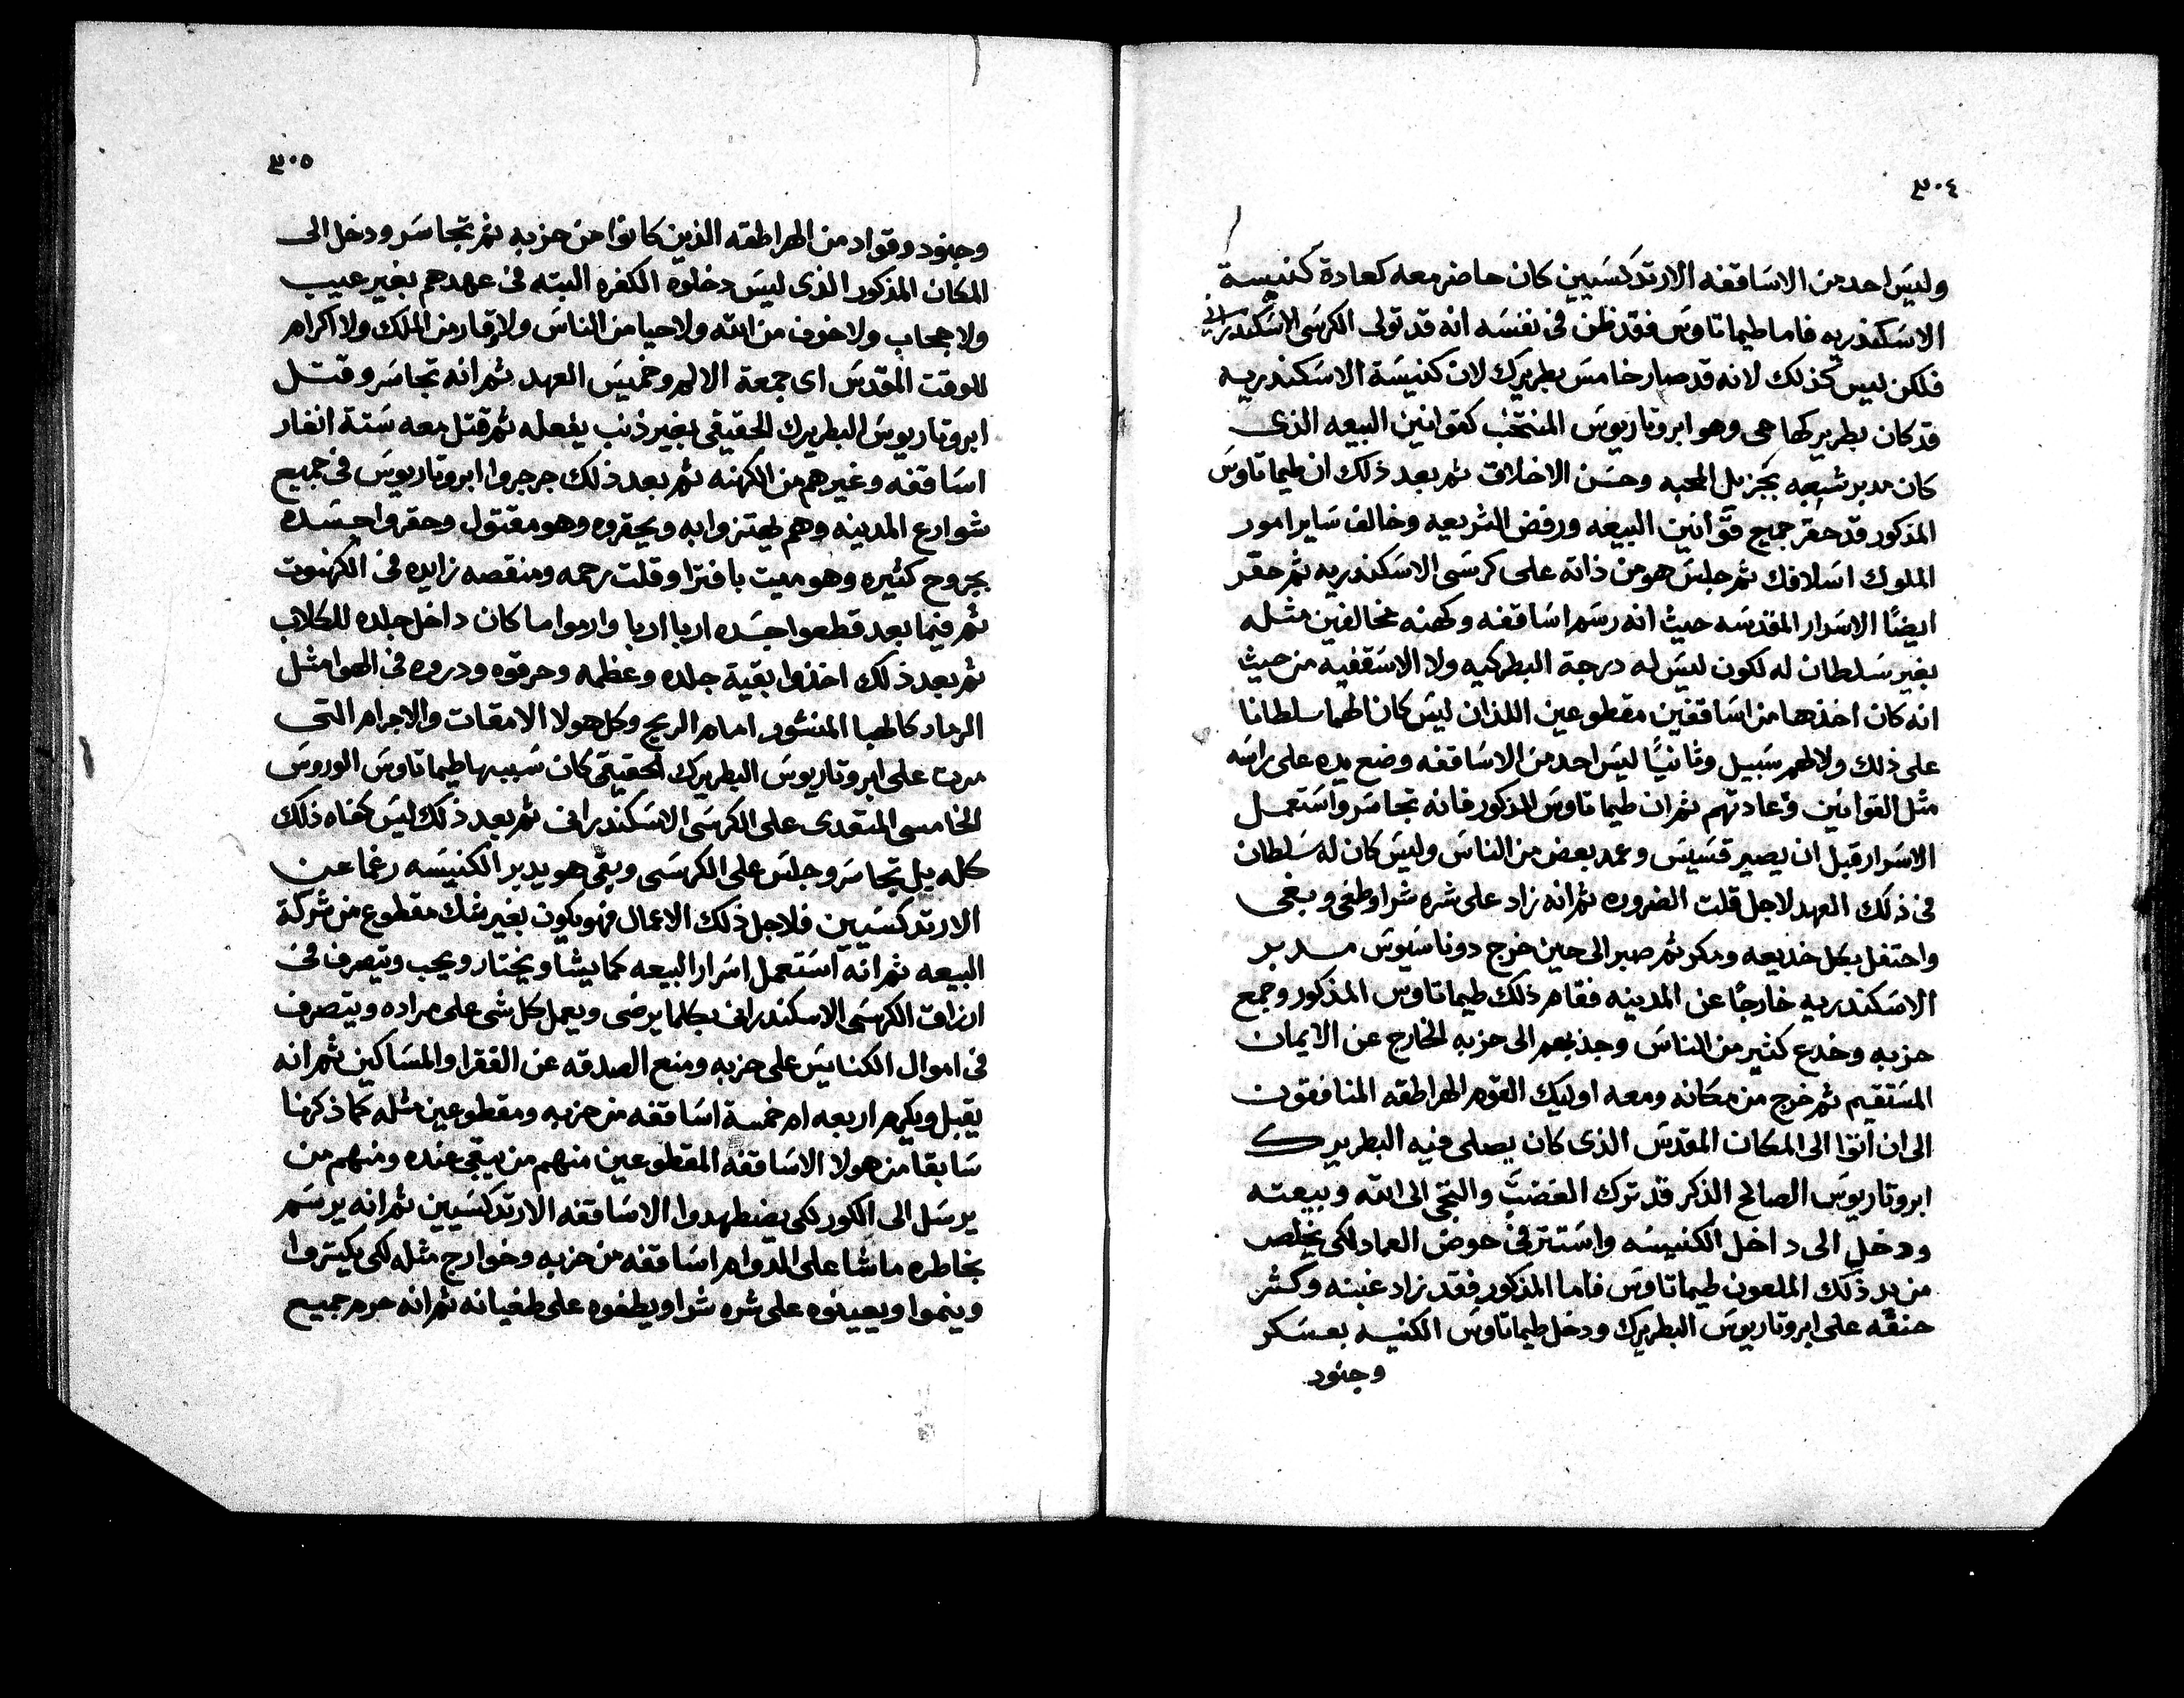 ٣٠٤
وليس احد من الاساقفه الارتدكسيين كان حاضر معه كعادة كنيسة
الاسكندريه فاما طيماتاوس فقد ظن فى نفسه انه قد تولى الكرسى الاسكندرانى
فلكن ليس كذلك لانه قد صار خامس بطريرك لان كنيسة الاسكندريه
قد كان بطريركها حى وهو ابروتاريوس المنتخب كقوانين البيعه الذى
كان مدبر شعبه بجزيل المحبه وحسن الاخلاق ثم بعد ذلك ان طيماتاوس
المذكور قد حقر جميع قوانين البيعه ورفض الشريعه وخالف ساير امور
الملوك اسلافك ثم جلس هو من ذاته على كرسى الاسكندريه ثم حقر
ايضًا الاسرار المقدسه حيث انه رسم اساقفه وكهنه مخالفين مثله
بغير سلطان له لكون ليس له درجة البطركيه ولا الاسقفيه من حيث
انه كان اخذها من اساقفين مقطوعين اللذان ليس كان لهما سلطانا
على ذلك ولا لهم سبيل وثانيًا ليس احد من الاساقفه وضع يده على راسه
مثل القوانين وعادتهم ثم ان طيماتاوس المذكور فانه تجاسر واستعمل
الاسرار قبل ان يصير قسيس وعمد بعض من الناس وليس كان له سلطان
فى ذلك العهد لاجل قلت الضروره ثم انه زاد على شره شرا وطغى وبغى
واحتفل بكل خديعه ومكر ثم صبر الى حين خرج دوناسيوس مدبر
الاسكندريه خارجًا عن المدينه فقام ذلك طيماتاوس المذكور وجمع
حزبه وخدع كثير من الناس وجذبهم الى حزبه الخارج عن الايمان
المستقيم ثم خرج من مكانه ومعه اوليك القوم الهراطقه المنافقون
الى ان اتوا الى المكان المقدس الذى كان يصلى فيه البطريرك
ابروتاريوس الصالح الذكر قد ترك الغضب والتجى الى الله وبيعته
ودخل الى داخل الكنيسه واستتر فى حوض العماد لكى يخلص
من يد ذلك الملعون طيماتاوس فاما المذكور فقد زاد غبنه وكثر
حنقه على ابروتاريوس البطريرك ودخل طيماتاوس الكنيسه بعسكر
وجنود
٣٠٥
وجنود وقواد من الهراطقه الذين كانوا من حزبه ثم تجاسر ودخل الى
المكان المذكور الذى ليس دخلوه الكفره البته فى عهدهم بغير عيب
ولا حجاب ولا خوف من الله ولا حيا من الناس ولا وقار من الملك ولا اكرام
للوقت المقدس اى جمعة الالم وخميس العهد ثم انه تجاسر وقتل
ابروتاريوس البطريرك الحقيقى بغير ذنب يفعله ثم قتل معه ستة انفار
اساقفه وغيرهم من الكهنه ثم بعد ذلك جرجروا ابروتاريوس فى جميع
شوارع المدينه وهم يهتزوا به ويحقروه وهو مقتول وحقروا جسده
بجروح كثيره وهو ميت بافترا وقلت رحمه ومنقصه زايده فى الكهنوت
ثم فيما بعد قطعوا جسده اربا اربا وارموا ما كان داخل جلده للكلاب
ثم بعد ذلك اخذوا بقية جلده وعظمه وحرقوه ودروه فى الهوا مثل
الرماد كالهبا المنشور امام الريح وكل هولا الامقات والاجرام التى
مرت على ابروتاريوس البطريرك الحقيقى كان سببها طيماتاوس الوروس
الخامسى المتعدى على الكرسى الاسكندرانى ثم بعد ذلك ليس كفاه ذلك
كله بل تجاسر وجلس على الكرسى وبقى هو يدبر الكنيسه رغما عن
الارتدكسيين فلاجل ذلك الاعمال فهو يكون بغير شك مقطوع من شركة
البيعه ثم انه استعمل اسرار البيعه كما يشا ويختار ويحب وتيصرف فى
ارزاق الكرسى الاسكندرانى بكلما يرضى ويعمل كل شى على مراده ويتصرف
فى اموال الكنايس على حزبه ومنع الصدقه عن الفقرا والمساكين ثم انه
يقبل ويكرم اربعه ام خمسة اساقفه من حزبه ومقطوعين مثله كما ذكرنا
سابقا من هولا الاساقفه المقطوعين منهم من يبقى عنده ومنهم من
يرسل الى الكور لكى يضطهدوا الاساقفه الارتدكسيين ثم انه يرسم
بخاطره ما شا على الدوام اساقفه من حزبه وخوارج مثله لكى يكتروا
وينموا ويعينوه على شره شرا ويطغوه على طغيانه ثم انه حرم جميع